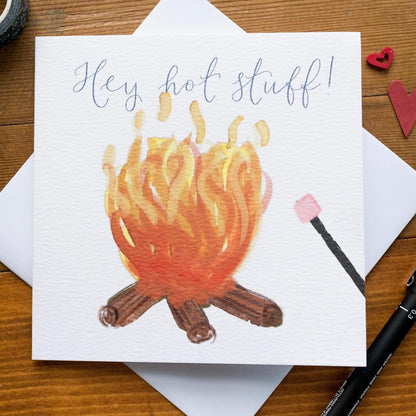 Hey hot stuff!
0.3